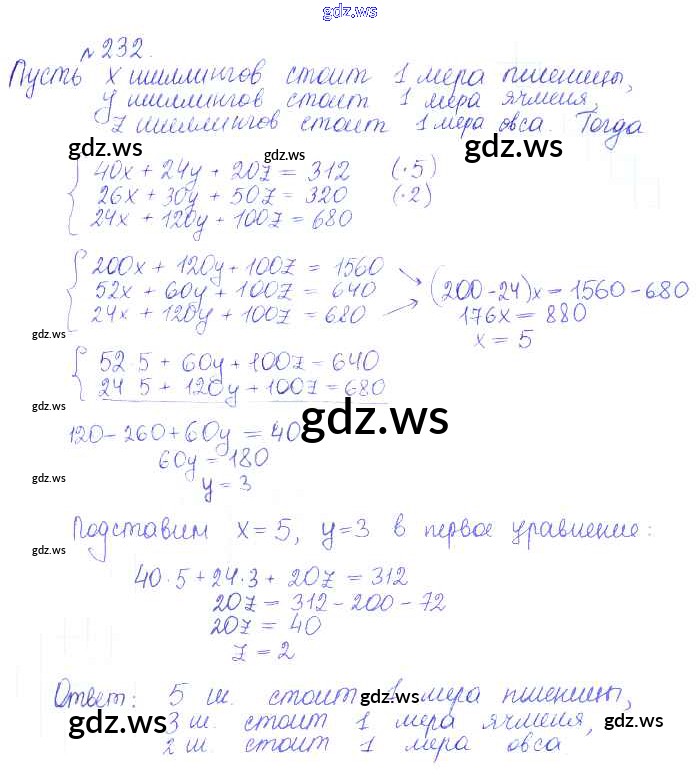 gdz.ws
№ 232.
Пусть x шиллингов стоит 1 мера пшеницы,
y шиллингов стоит 1 мера ячменя,
z шиллингов стоит 1 мера овса. Тогда
gdz.ws gdz.ws gdz.ws
40x + 24y + 20z = 312 (·5)
26x + 30y + 50z = 320 (·2)
24x + 120y + 100z = 680
200x + 120y + 100z = 1560
52x + 60y + 100z = 640 (200-24)x = 1560-680
24x + 120y + 100z = 680 176x = 880
gdz.ws x = 5
52·5 + 60y + 100z = 640
24·5 + 120y + 100z = 680
gdz.ws gdz.ws
120 - 260 + 60y = 40
60y = 180
gdz.ws
y = 3
Подставим x = 5, y = 3 в первое уравнение:
gdz.ws
40·5 + 24·3 + 20z = 312
20z = 312 - 200 - 72
gdz.ws
20z = 40
z = 2
Ответ: 5 ш. стоит 1 мера пшеницы,
gdz.ws
3 ш. стоит 1 мера ячменя,
gdz.ws gdz.ws
2 ш. стоит 1 мера овса.
gdz.ws